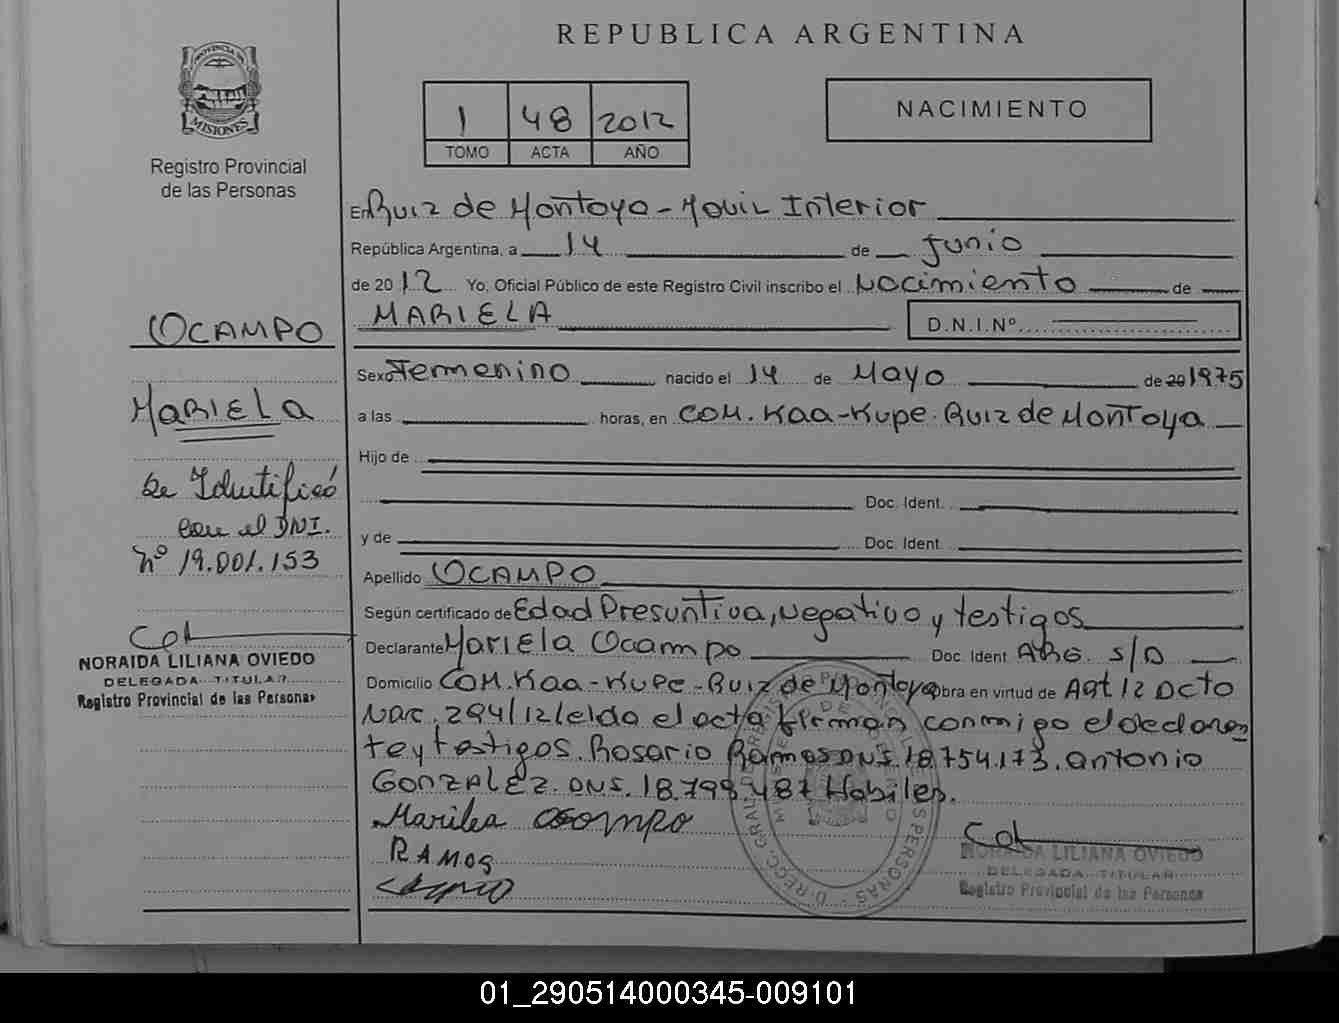 REPUBLICA ARGENTINA
PROVINCIA DE
MISIONES
Registro Provincial
de las Personas
1 48 2012
TOMO ACTA AÑO
NACIMIENTO
En Ruiz de Montoya - Movil Interior
República Argentina, a 14 de Junio
de 2012 Yo, Oficial Público de este Registro Civil inscribo el Nacimiento de
MARIELA D.N.I.Nº
Sexo Femenino nacido el 14 de Mayo de 20 1975
a las horas, en COM. Kaa-Kupe. Ruiz de Montoya
Hijo de
Doc. Ident.
y de Doc. Ident.
Apellido OCAMPO
Según certificado de Edad Presuntiva, Negativo y testigos
Declarante Mariela Ocampo Doc. Ident. ARG. S/D
Domicilio COM. Kaa-Kupe-Ruiz de Montoya obra en virtud de Art 12 Dcto
Nac. 294/12 leido el acta firman conmigo el declaran
te y testigos. Rosario Ramos DNI. 18.754.173. Antonio
GONZALEZ. DNI. 18.799.487 Habiles.
Marilea Ocompo
RAMOS
NORAIDA LILIANA OVIEDO
DELEGADA TITULAR
Registro Provincial de las Personas
OCAMPO
MARIELA
Se Identificó
con el DNI.
Nº 19.001.153
NORAIDA LILIANA OVIEDO
DELEGADA TITULAR
Registro Provincial de las Personas
01_290514000345-009101